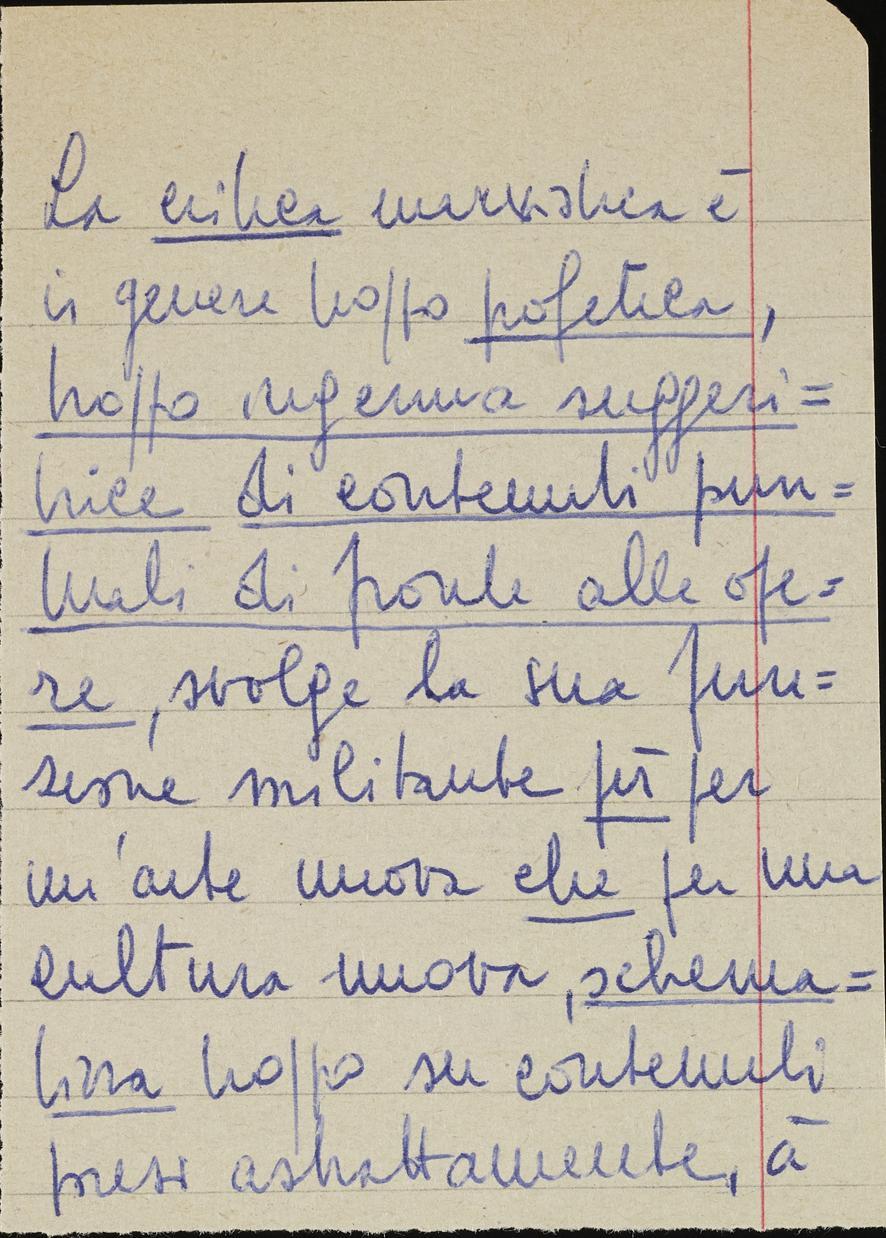 La critica marxistica è
in genere troppo profetica,
troppo ingenua suggeri=
trice di contenuti pun=
tuali di fronte alle ope=
re, svolge la sua fun=
zione militante più per
un'arte nuova che per una
cultura nuova, schema=
tizza troppo su contenuti
presi astrattamente, à